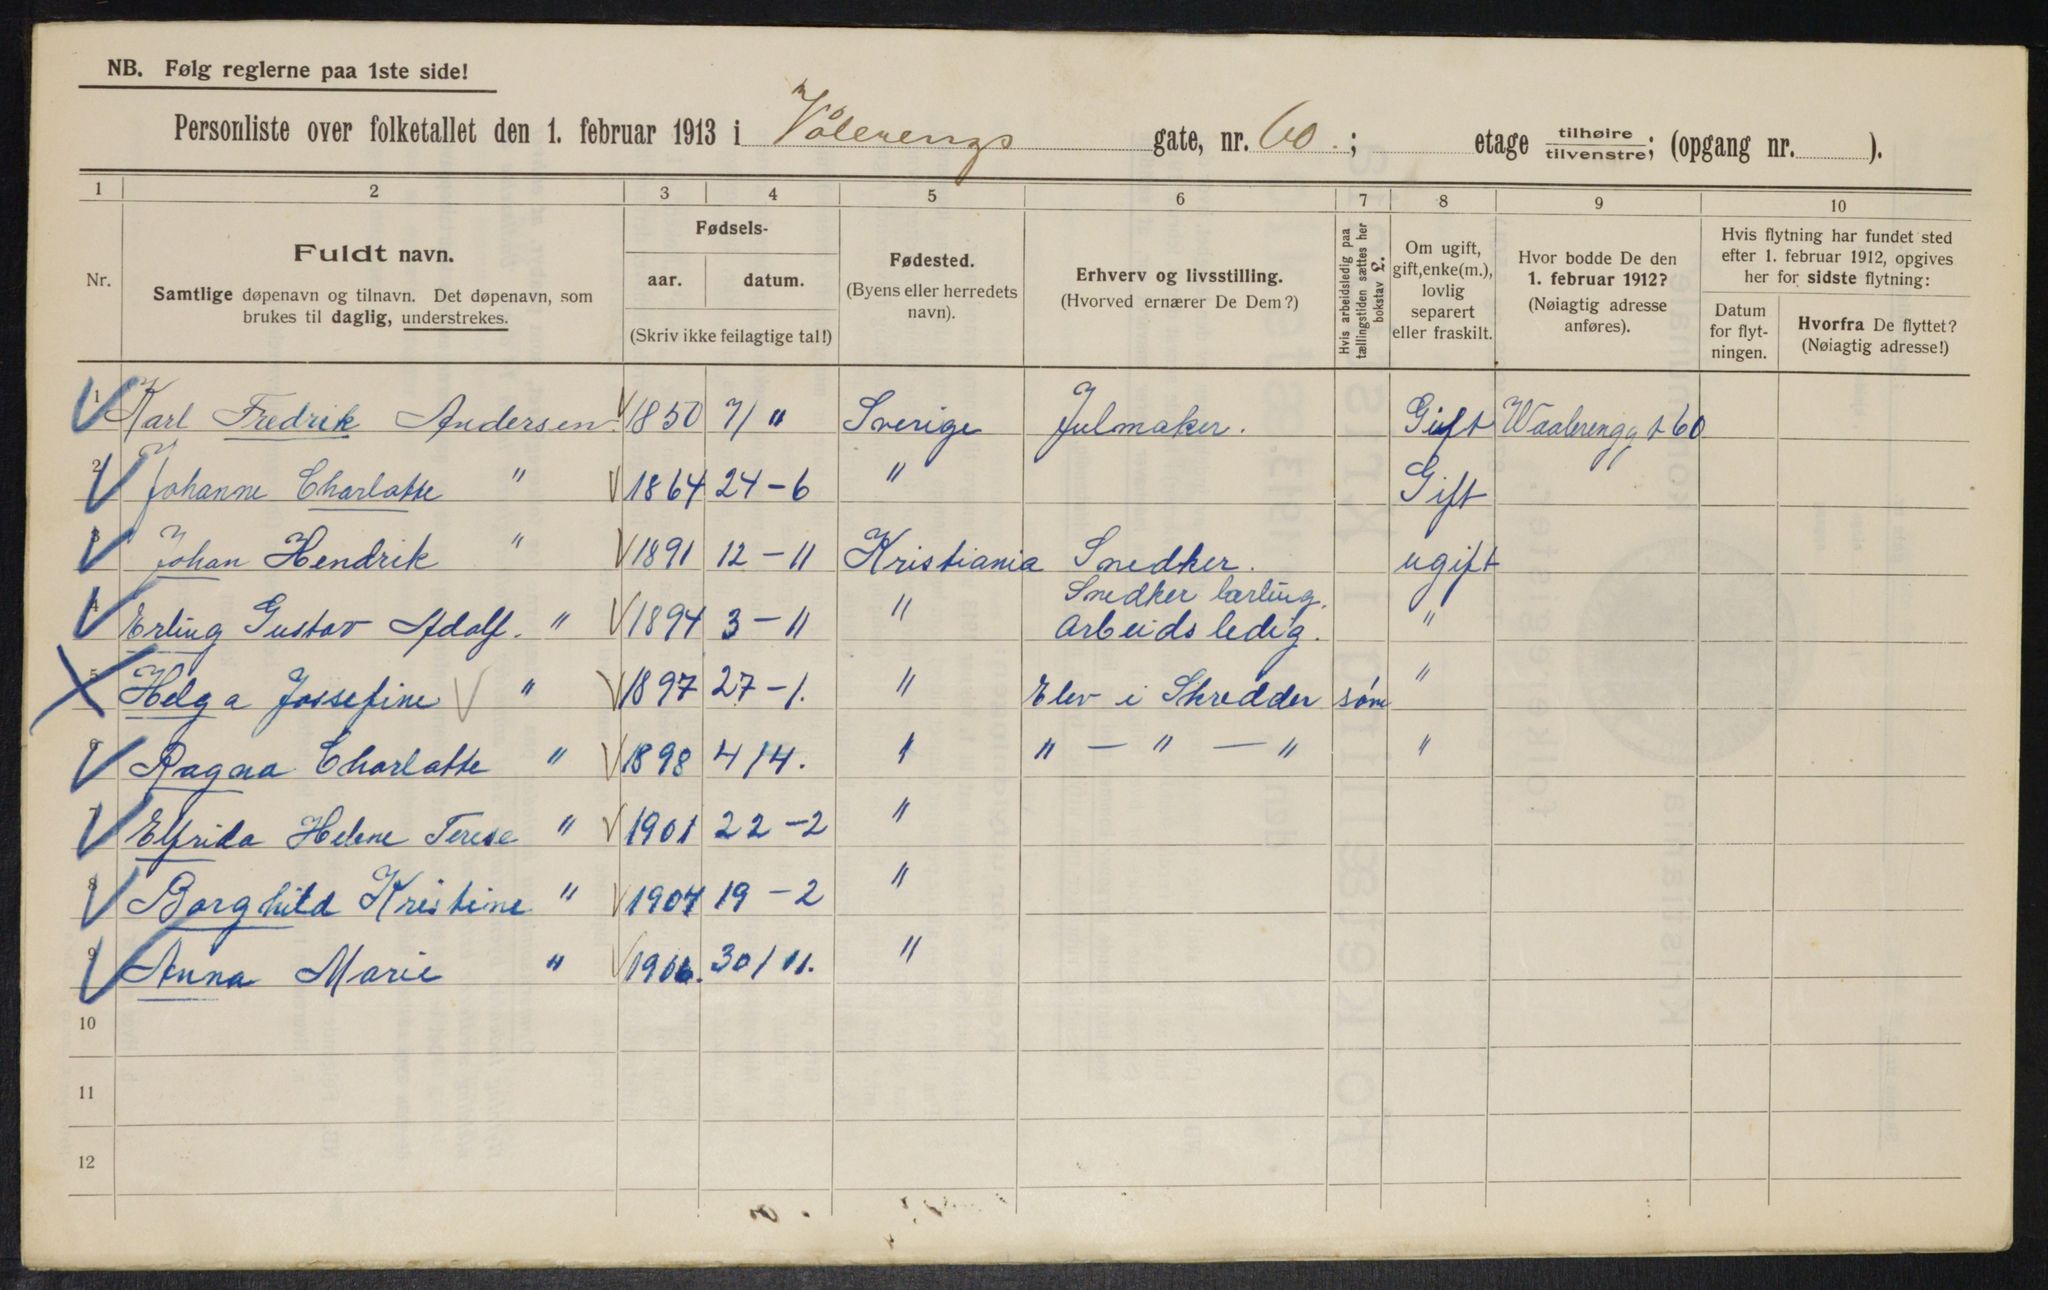 NB. Følg reglerne paa 1ste side!
Personliste over folketallet den 1. februar 1913 i Vålerengs gate, nr. 60.; etage tilhøire / tilvenstre; (opgang nr. ).
1 2 3 4 5 6 7 8 9 10
Nr.
Fuldt navn.
Samtlige døpenavn og tilnavn. Det døpenavn, som
brukes til daglig, understrekes.
Fødsels-
aar. datum.
(Skriv ikke feilagtige tal!)
Fødested.
(Byens eller herredets
navn).
Erhverv og livsstilling.
(Hvorved ernærer De Dem?)
Hvis arbeidsledig paa
tællingstiden sættes her
bokstav L.
Om ugift,
gift, enke(m.),
lovlig
separert
eller fraskilt.
Hvor bodde De den
1. februar 1912?
(Nøiagtig adresse
anføres).
Hvis flytning har fundet sted
efter 1. februar 1912, opgives
her for sidste flytning:
Datum
for flyt-
ningen.
Hvorfra De flyttet?
(Nøiagtig adresse!)
1 Karl Fredrik Andersen. 1850 7/" Sverige Julmaker. Gift Waalerengg t 60
2 Johanne Charlotte " 1864 24-6 " Gift
3 Johan Hendrik " 1891 12-11 Kristiania Snedker. ugift
4 Erling Gustav Adolf. " 1894 3-11 " Snedker lærling. "
Arbeids ledig.
5 Helga Jossefine " 1897 27-1. " Elev i Skredder søm "
6 Ragna Charlotte " 1898 4/4. " " — " — " "
7 Elfrida Helene Terese " 1901 22-2 "
8 Borghild Kristine " 1904 19-2 "
9 Anna Marie " 1906. 30/11. "
10
11
12